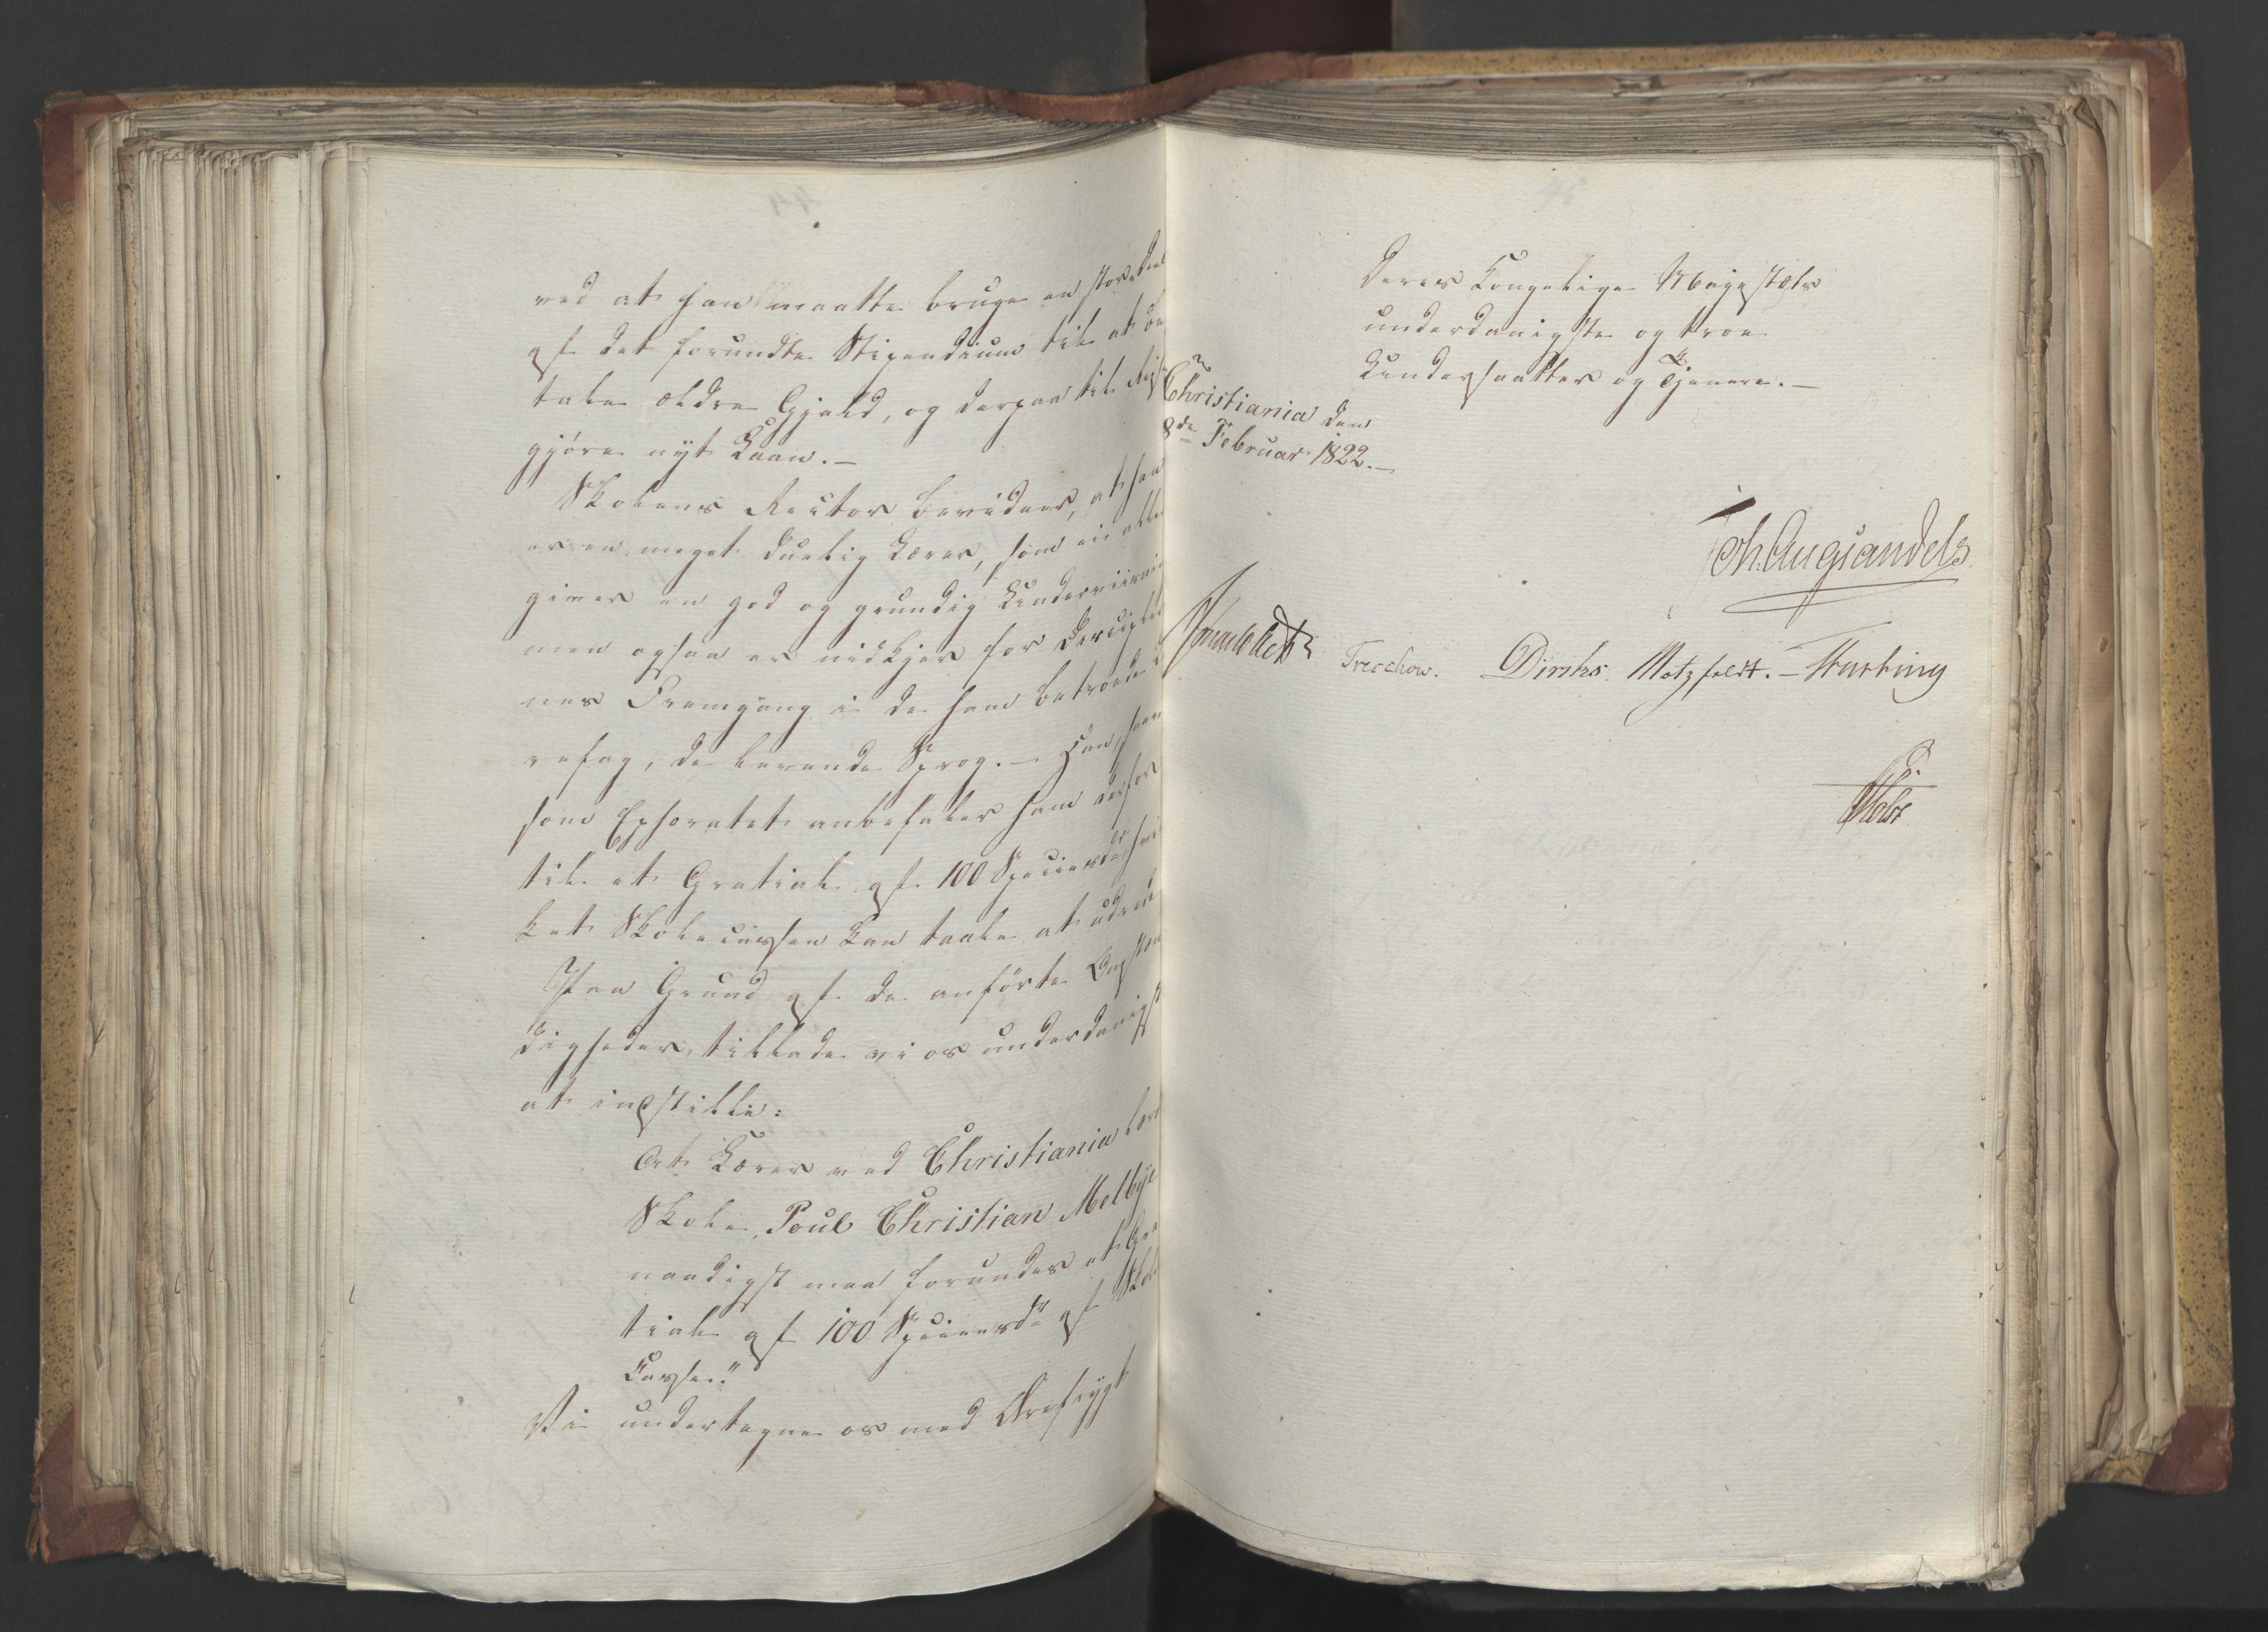 ved at han maatte bruge en stor Deel
af det forundte Stipendium til at be
tale ældre Gjeld, og derpaa til Reisen
gjøre nyt Laan.—
Skolens Rector bevidner, at han
er en meget duelig Lærer, som ei alene
giver en god og grundig Underviisning
men ogsaa er nidkjer for Disciple
nes Fremgang i de ham betroede Læ
refag, de levende Sprog.— Han, saavel
som Ephoratet anbefaler ham derfor
til et Gratiale af 100 Speciesdr hvil
ket Skolecassen kan taale at udrede
Paa Grund af de anførte Omstæn
digheder, tillade vi os underdanigst
at indstille:
At Lærer ved Christiania lærde
Skole, Poul Christian Melbye
naadigst maa forundes et Gra
tiale af 100 Speciesdr af Skolens
Casse."
Vi undertegne os med Ærefrygt
Deres Kongelige Majestæts
underdanigste og troe
Undersaatter og Tjenere.—
Christiania den
8de Februar 1822.—
Joh. Aug. Sandels
Sommerhielm
Treschow.
Diriks.
Motzfeldt.—
Fasting
Holst